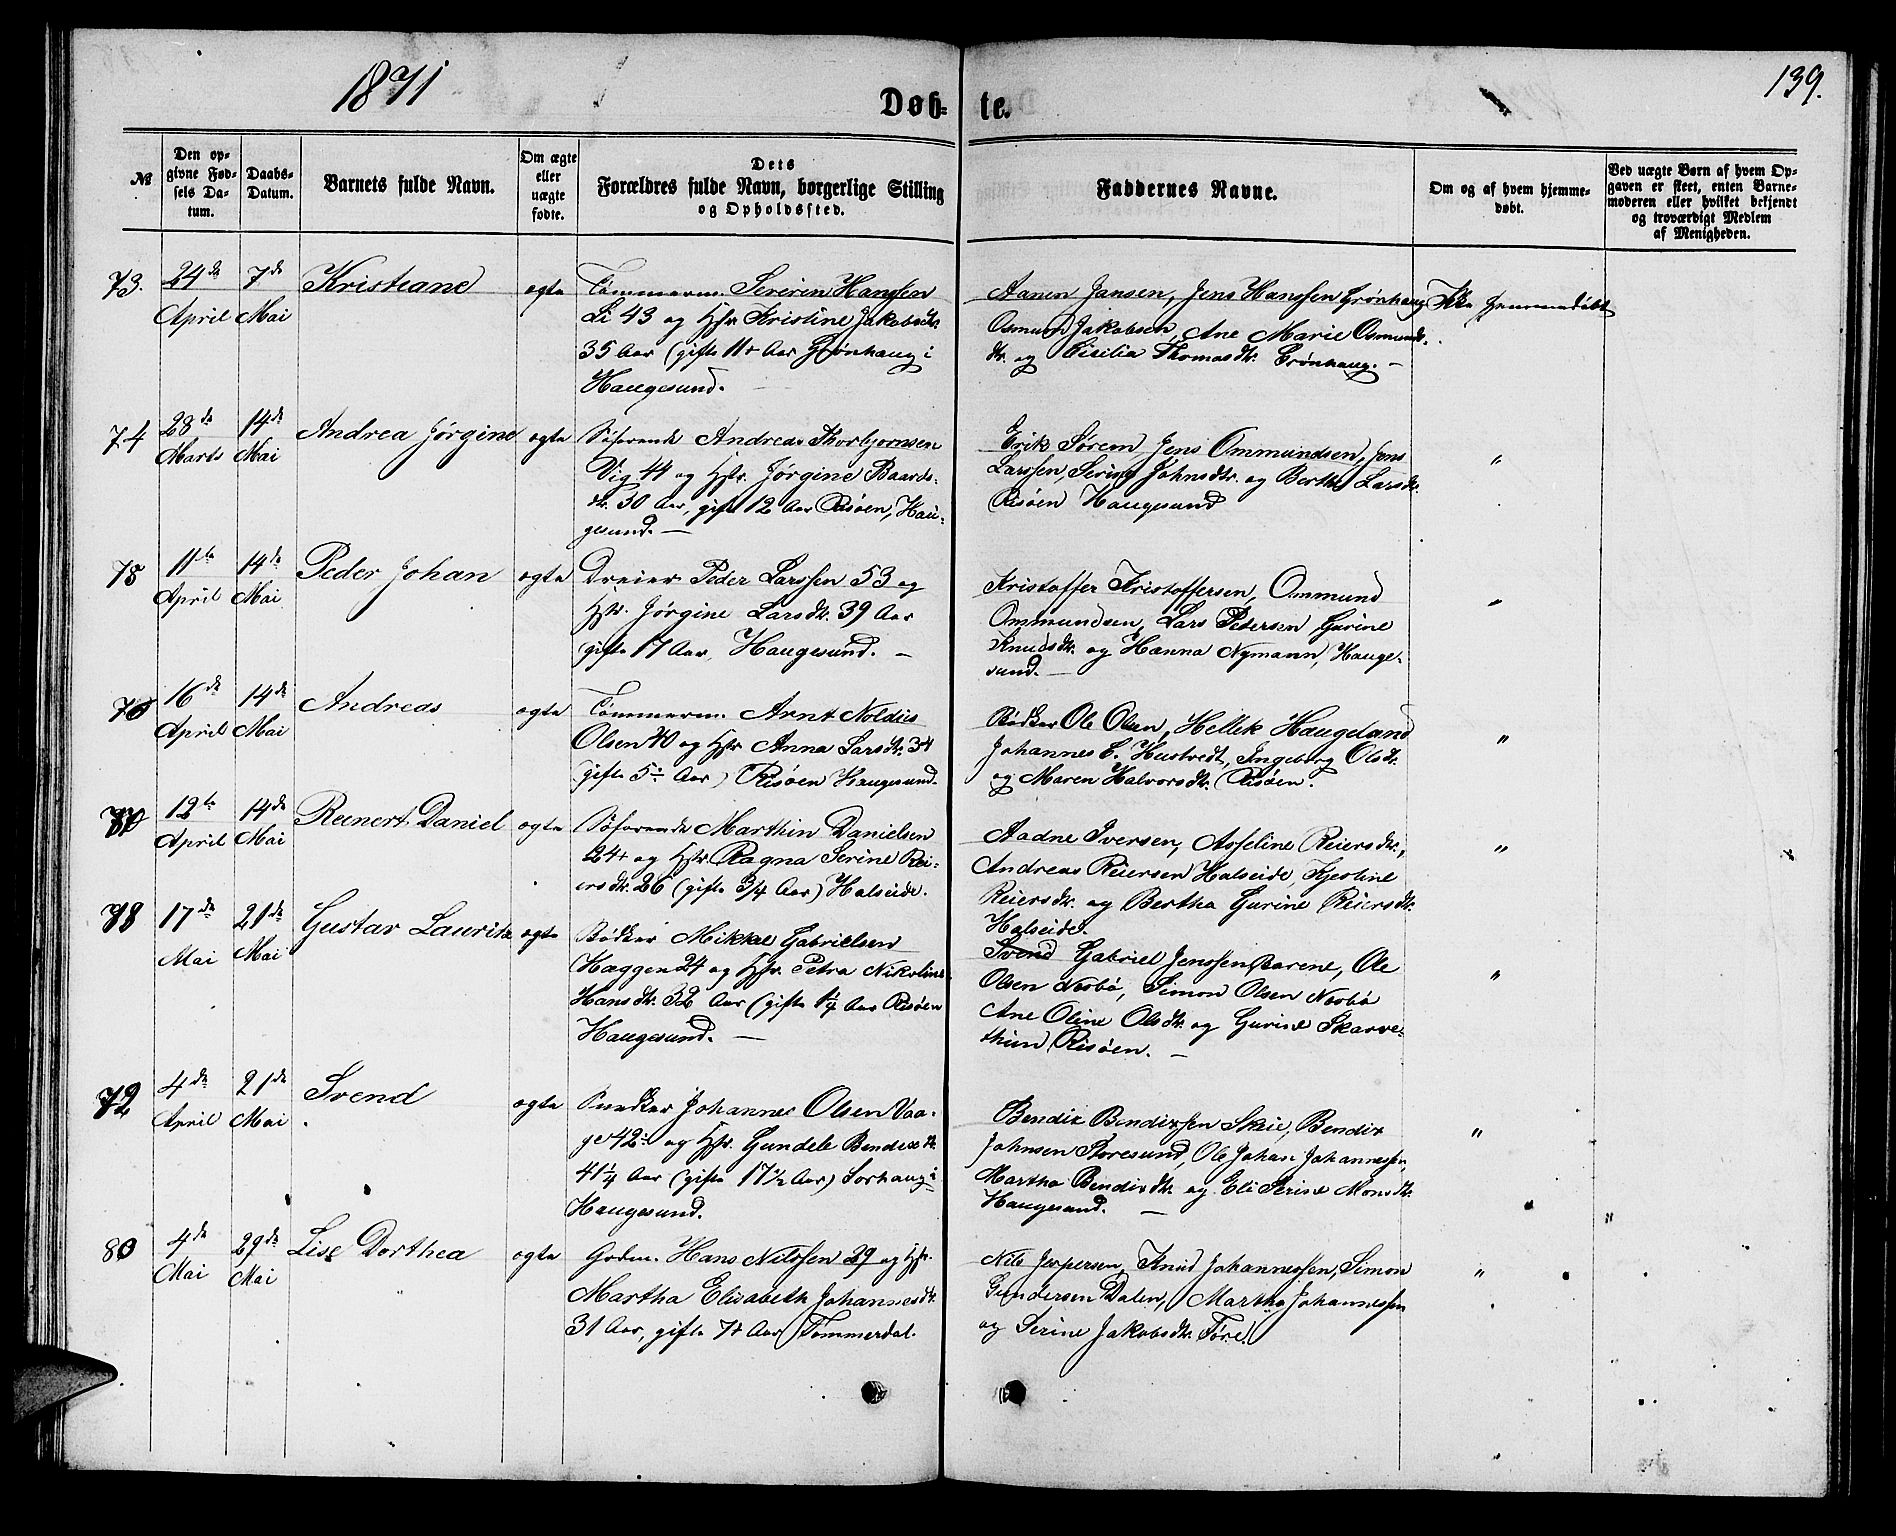 1871
139.
Døb-
te.
№
Den op-
givne Fød-
sels Da-
tum.
Daabs-
Datum.
Barnets fulde Navn.
Om ægte
eller
uægte
fødte.
Dets
Forældres fulde Navn, borgerlige Stilling
og Opholdssted.
Faddernes Navne.
Om og af hvem hjemme-
døbt.
Ved uægte Børn af hvem Op-
gaven er skeet, enten Barne-
moderen eller hvilket bekjendt
og troværdigt Medlem
af Menigheden.
73.
24de
April
7de
Mai
Kristiane
ægte
Tømmerm. Severin Hanssen
Li 43 og Hstr. Kristine Jakobsdtr.
35 Aar (gifte 11+ Aar Grønhaug i
Haugesund. —
Aanen Jansen, Jens Hanssen Grønhaug
Osmun Jakobsen, Ane Marie Osmunds-
dtr. og Cicilia Thomasdtr. Grønhaug. —
Ikke hjemmedøbt
74
28de
Marts
14de
Mai
Andrea Jørgine
ægte
Søfarende Andreas Thorbjørnsen
Vig 44 og Hstr. Jørgine Baards-
dtr. 30 Aar, gifte 12 Aar Risøen, Hau-
gesund. —
Erik Sørem, Jens Ommundsen, Jens
Larssen, Sering Johnsdtr. og Berthe Larsdtr.
Risøen Haugesund
"
75
11te
April
14de
Mai
Peder Johan
ægte
Dreier Peder Larssen 53 og
Hstr. Jørgine Larsdtr. 39 Aar
(gifte 17 Aar, Haugesund. —
Kristoffer Kristoffersen, Ommund
Ommundsen, Lars Petersen Gurine
Knudsdtr. og Hanna Nymann, Hauge-
sund. —
"
76
16de
April
14de
Mai
Andreas
ægte
Tømmerm. Arnt Noldius
Olsen 40 og Hstr. Anna Larsdtr. 34
(gifte 5 Aar) Risøen Haugesund.
Bødker Ole Olsen, Hellek Haugeland
Johannes E. Hustvedt, Ingeborg Olsdtr.
og Maren Halvorsdtr. Risøen.
"
77
12te
April
14de
Mai
Reinert Daniel
ægte
Søfarende Marthin Danielsen
24+ og Hstr. Ragna Serine Rei-
ersdtr. 26 (gifte 3/4 Aar) Halseide.
Aadne Iversen, Asseline Reiersdtr.,
Andreas Reiersen Halseide, Kjerline
Reiersdtr. og Bertha Gurine Reiersdtr.
Halseide.
"
78
17de
Mai
21de
Mai
Gustav Lauritz
ægte
Bødker Mikkel Gabrielsen
Hæggen 24 og Hstr. Petra Nikoline
Hansdtr. 32 Aar (gifte 1/4 Aar Risøen
Haugesund. —
Svend Gabriel Jenssen Barene, Ole
Olsen Nesbø, Simon Olsen Nesbø
Ane Oline Olsdtr. og Gurine Skarve-
thun Risøen. —
"
79
4de
April
21de
Mai
Svend
ægte
Snedker Johannes Olsen Vaa-
ge 42 og Hstr. Gundele Bendixdtr.
41 1/4 Aar (gifte 17 1/2 Aar) Sørhaug i
Haugesund.
Bendix Bendixsen Skrie, Bendix
Johnsen Storesund, Ole Johan Johannessen,
Martha Bendixdtr. og Eli Serine Monsdtr.
Haugesund. —
"
"
80
4de
Mai
29de
Mai
Lise Dorthea
ægte
Gdm. Hans Nilssen 29 og Hstr.
Martha Elisabeth Johannesdtr.
31 Aar, gifte 7+ Aar Tømmerdal.
Nils Jespersen, Knud Johannessen, Simon
Gundersen Dalen, Martha Johannessen
og Serine Jakobsdtr. Føre.
"